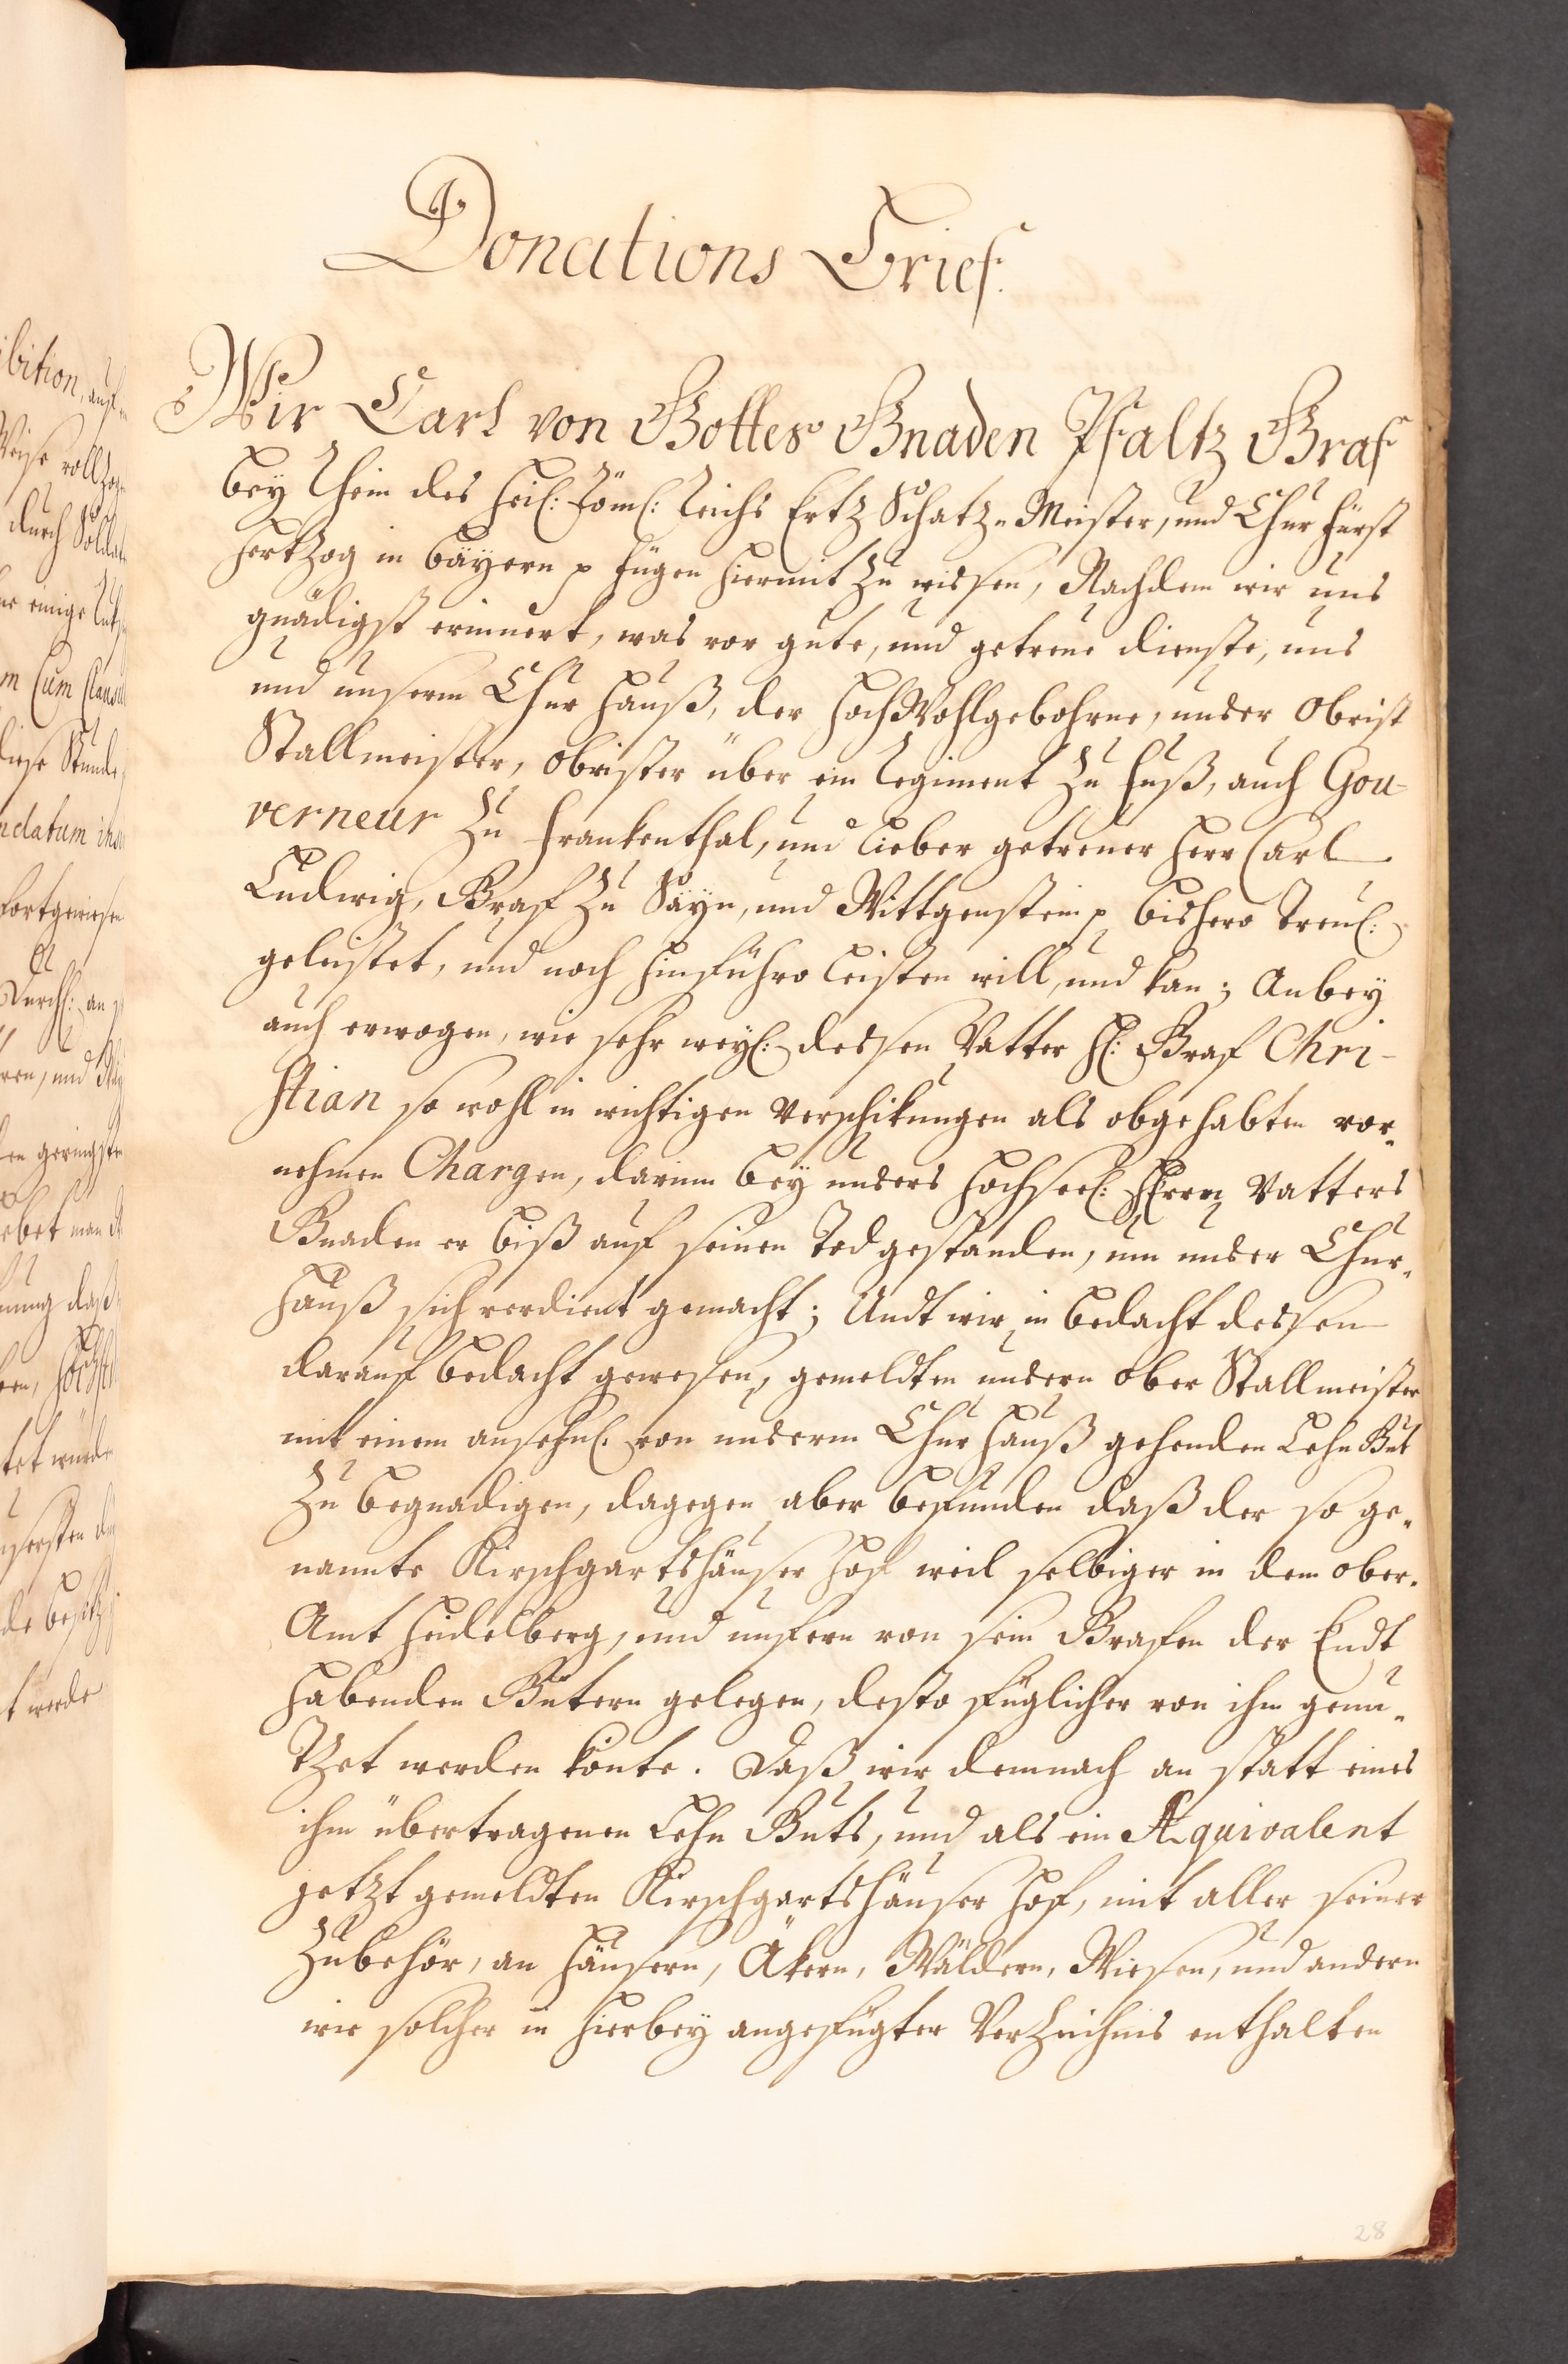 Donations Brief.
Wir Carl von Gottes Gnaden Pfaltz Graf
bey Rhein des Heil: Röm: Reichs Ertz Schatz-Meister, und Chur Fürst
Hertzog in Bäyern p fügen hiermit zu wissen, Nachdem wir uns
gnädigst erinnert, was vor gute, und getreue dienste, uns
und unserm Chur Hauß, der HochWohlgebohrne, unser Obrist
Stallmeister, Obrister über ein Regiment zu Fuß, auch Gou-
verneur zu Frankenthal, und lieber getreuer Herr Carl
Ludwig, Graf zu Säyn, und Wittgenstein p bishero treul:
geleistet, und noch hinführo leisten will, und kan; Anbey
auch erwogen, wie sehr weyl: dessen Vatter H: Graf Chri-
stian so wohl in wichtigen Verschikungen als obgehabten vor-
nehmen Chargen, darinn bey unsers Hochseel: Herrn Vatters
Gnaden er biß auf seinen Tod gestanden, um unser Chur-
Hauß sich verdient gemacht; Undt wir in bedacht dessen
darauf bedacht gewesen, gemeldten unsern Ober Stallmeister
mit einem ansehnl. von unserm Chur Hauß gehenden Lehn Gut
zu begnadigen, dagegen aber befunden daß der so ge-
nannte Kirschgartshäuser Hof weil selbiger in dem Ober-
Amt Heidelberg, und unfern von sein Grafen der Endt
habenden Gütern gelegen, desto füglicher von ihm genu-
tzet werden könte. Daß wir demnach an statt eines
ihm übertragenen Lehn Guts, und als ein Æquivalent
jetzt gemeldten Kirschgartshäuser Hof, mit aller seiner
Zubehör, an Häusern, Äkern, Wäldern, Wiesen, und andern
wie solcher in hierbey angefügter Verzeichnis enthalten
28